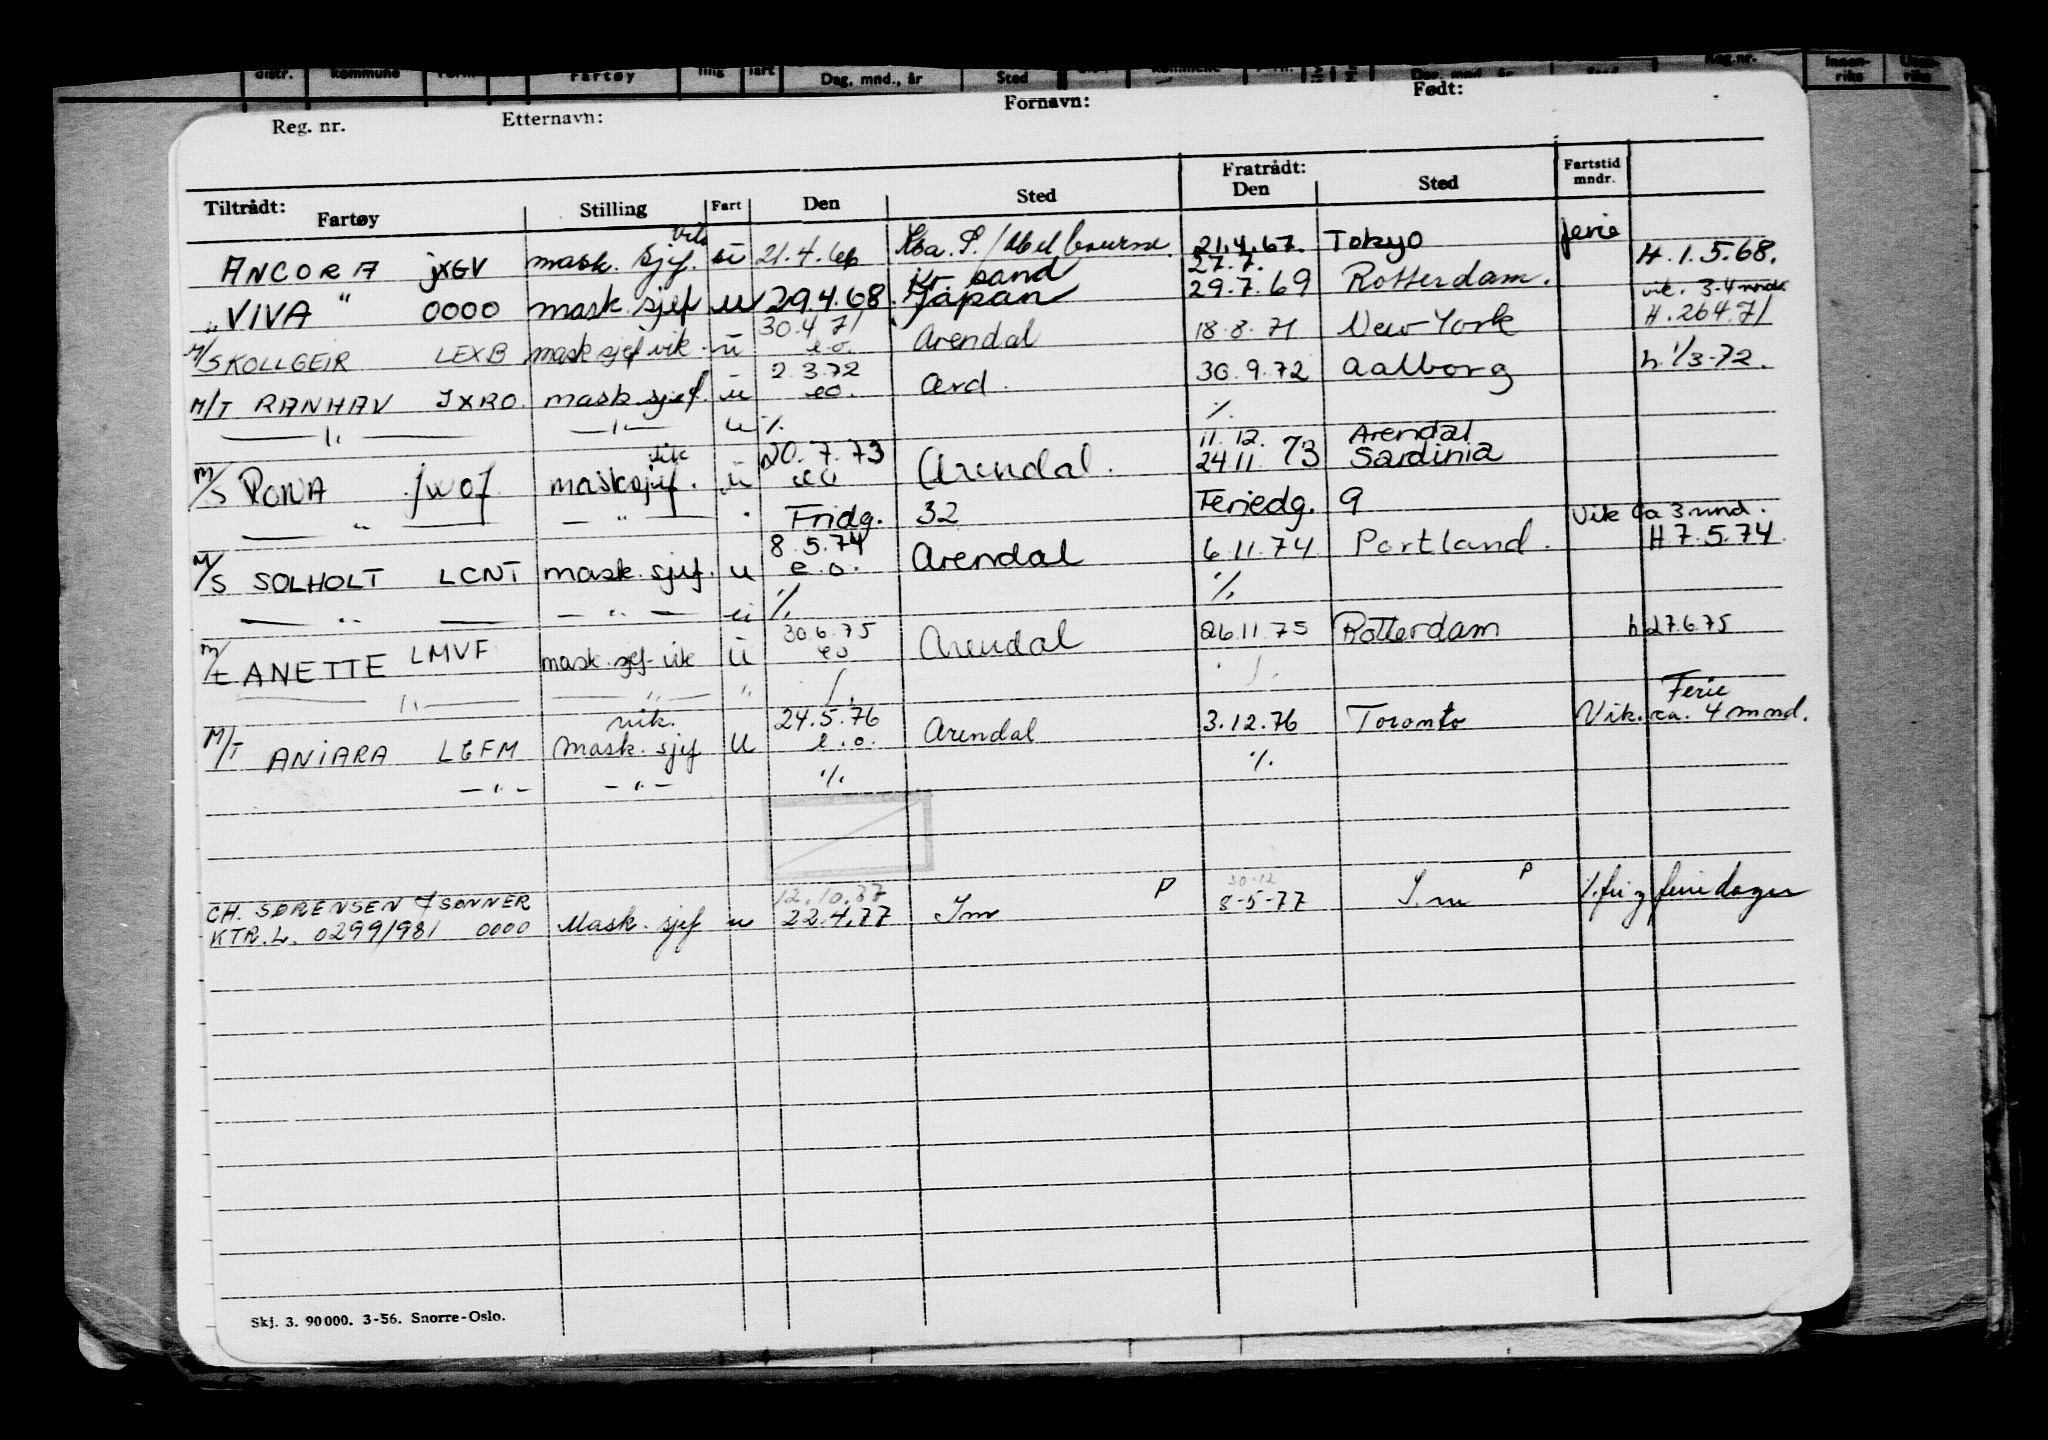 distr. Kommune Fartøy Dag, mnd., år Sted Reg.nr. Innenriks
Reg. nr. Etternavn: Fornavn: Født:
Tiltrådt: Fratrådt: Fartstid mndr.
Fartøy Stilling Fart Den Sted Den Sted
ANCORA JXGV mask. sjef. vik ü 21.4.66 Kra. S./Melbourne 21.4.67. Tokyo ferie
Kr. sand 27.7. H.1.5.68.
"VIVA " 0000 mask sjef u 29.4.68. Japan 29.7.69 Rotterdam.
30.4.71 vik. 3-4 mndr.
M/S KOLLGEIR LEXB mask sjef vik ü e.o. Arendal 18.8.71 New York H. 26.4.71
2.3.72
M/T RANHAV JXRO mask sjef. ü eo. Ard. 30.9.72 Aalborg h. 1/3-72.
— " — — " — u ./. ./.
vik 20.7.73 11.12. Arendal
M/S RONA JWOJ masksjef. ü eo Arendal. 24.11 73 Sardinia
— " — — " — Fridg. 32 Feriedg. 9 Vik ca 3 mnd.
8.5.74 H 7.5.74.
M/S SOLHOLT LCNT mask. sjef. u e.o. Arendal 6.11.74 Portland.
— " — — " — ü ./. ./.
30.6.75
M/T ANETTE LMVF mask. sjef-vik ü eo Arendal 26.11.75 Rotterdam h 27.6.75
— " — — " — " ./. ./.
vik. 24.5.76 Ferie
M/T ANIARA LGFM Mask. sjef U e.o. Arendal 3.12.76 Toronto Vik. ca. 4 mnd.
— " — — " — ./. ./.
12.10.37 P 30.12 P
CH. SØRENSEN & SØNNER
KTR.L. 0299/981 0000 Mask. sjef u 22.4.77 8-5-77 ./. fri og feriedager
Skj. 3. 90000. 3-56. Snorre-Oslo.